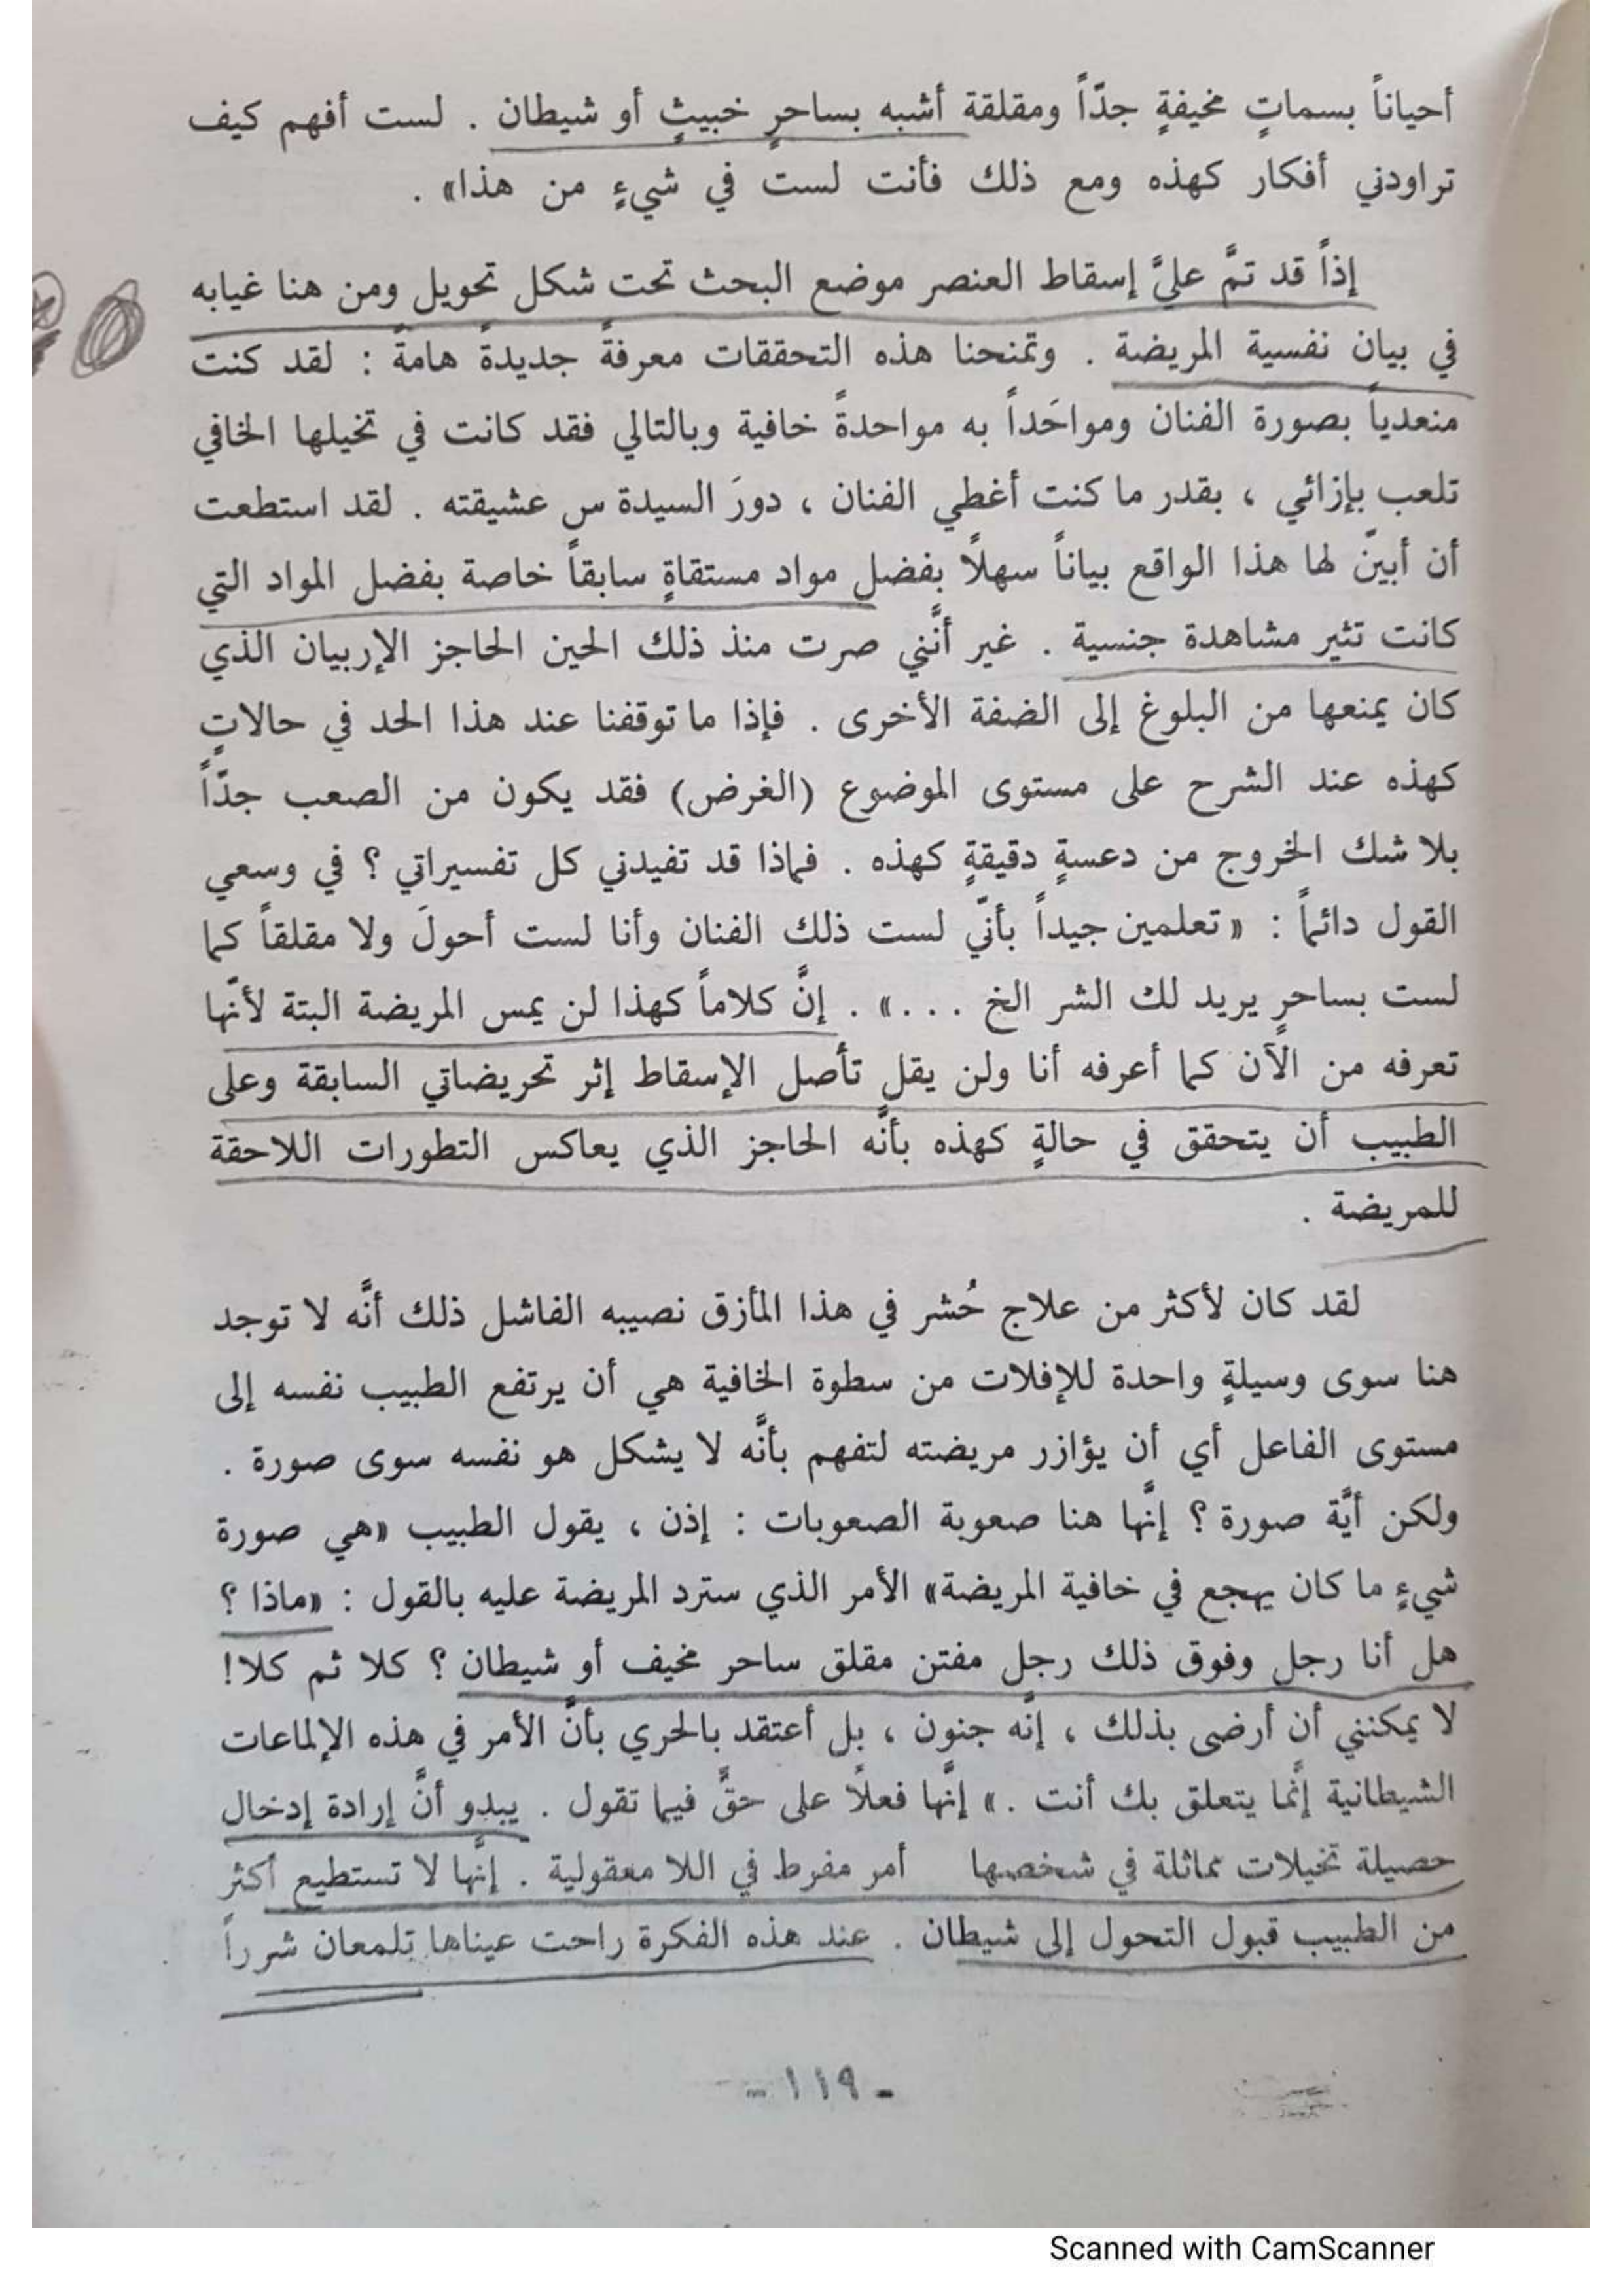 أحياناً بسماتٍ مخيفةٍ جدّاً ومقلقة أشبه بساحرٍ خبيثٍ أو شيطان . لست أفهم كيف
تراودني أفكار كهذه ومع ذلك فأنت لست في شيءٍ من هذا» .
إذاً قد تمَّ عليَّ إسقاط العنصر موضع البحث تحت شكل تحويل ومن هنا غيابه
في بيان نفسية المريضة . وتمنحنا هذه التحققات معرفةً جديدةً هامةً : لقد كنت
منعدياً بصورة الفنان ومواحَداً به مواحدةً خافية وبالتالي فقد كانت في تخيلها الخافي
تلعب بإزائي ، بقدر ما كنت أغطي الفنان ، دورَ السيدة س عشيقته . لقد استطعت
أن أبينّ لها هذا الواقع بياناً سهلاً بفضل مواد مستقاةٍ سابقاً خاصة بفضل المواد التي
كانت تثير مشاهدة جنسية . غير أنَّني صرت منذ ذلك الحين الحاجز الإربيان الذي
كان يمنعها من البلوغ إلى الضفة الأخرى . فإذا ما توقفنا عند هذا الحد في حالاتٍ
كهذه عند الشرح على مستوى الموضوع (الغرض) فقد يكون من الصعب جدّاً
بلا شك الخروج من دعسةٍ دقيقةٍ كهذه . فماذا قد تفيدني كل تفسيراتي ؟ في وسعي
القول دائماً : «تعلمين جيداً بأنّي لست ذلك الفنان وأنا لست أحولَ ولا مقلقاً كما
لست بساحرٍ يريد لك الشر الخ ...» . إنَّ كلاماً كهذا لن يمس المريضة البتة لأنّها
تعرفه من الآن كما أعرفه أنا ولن يقل تأصل الإسقاط إثر تحريضاتي السابقة وعلى
الطبيب أن يتحقق في حالةٍ كهذه بأنَّه الحاجز الذي يعاكس التطورات اللاحقة
للمريضة .
لقد كان لأكثر من علاج حُشر في هذا المأزق نصيبه الفاشل ذلك أنَّه لا توجد
هنا سوى وسيلةٍ واحدة للإفلات من سطوة الخافية هي أن يرتفع الطبيب نفسه إلى
مستوى الفاعل أي أن يؤازر مريضته لتفهم بأنَّه لا يشكل هو نفسه سوى صورة .
ولكن أيَّة صورة ؟ إنَّها هنا صعوبة الصعوبات : إذن ، يقول الطبيب «هي صورة
شيءٍ ما كان يهجع في خافية المريضة» الأمر الذي سترد المريضة عليه بالقول : «ماذا ؟
هل أنا رجل وفوق ذلك رجل مفتن مقلق ساحر مخيف أو شيطان ؟ كلا ثم كلا!
لا يمكنني أن أرضى بذلك ، إنَّه جنون ، بل أعتقد بالحري بأنَّ الأمر في هذه الإلماعات
الشيطانية إنَّما يتعلق بك أنت .» إنَّها فعلاً على حقٍّ فيما تقول . يبدو أنَّ إرادة إدخال
حصيلة تخيلات مماثلة في شخصها أمر مفرط في اللا معقولية . إنَّها لا تستطيع أكثر
من الطبيب قبول التحول إلى شيطان . عند هذه الفكرة راحت عيناها تلمعان شرراً
- ١١٩ -
Scanned with CamScanner